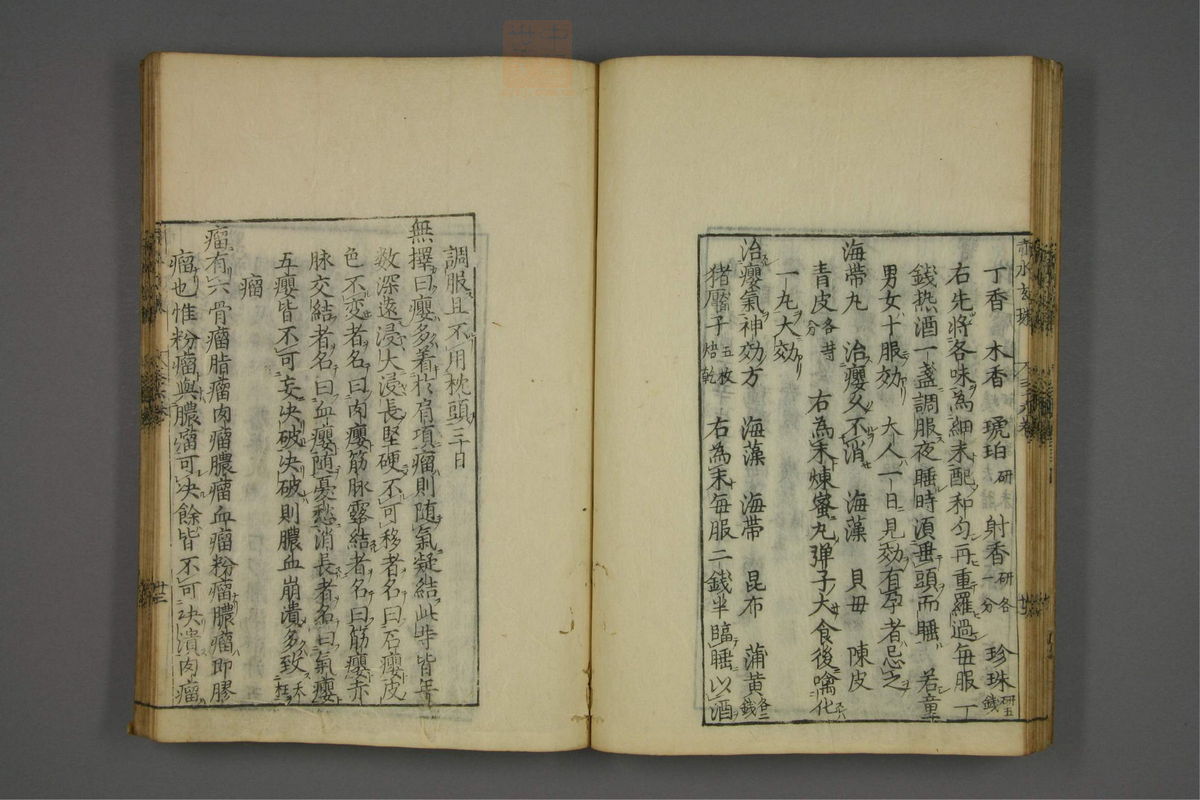 丁香　木香　琥珀研　射香研各一分　珍珠研五錢
右先將各味為細末配和匀再重羅過每服一
錢热酒一盞調服夜睡時湏垂頭而睡　若童
男女十服効　大人一日見効有孕者忌之
海帶丸　治癭久不消　海藻　貝毋　陳皮
青皮各等分　右為末煉蜜丸弹子大食後噙化
一丸大効
治癭氣神効方　海藻　海帶　昆布　蒲黄各二錢
猪靨子五枚焙乾　右為末每服二錢半臨睡以酒
調服且不用枕頭三十日
無擇曰癭多着於肩項瘤則随氣凝結此等皆年
数深遠浸大浸長堅硬不可移者名曰石癭皮
色不変者名曰肉癭筋脉露結者名曰筋癭赤
脉交結者名曰血癭随憂愁消長者名曰氣癭
五癭皆不可妄决破决破則膿血崩潰多致夭枉
瘤
瘤有六骨瘤脂瘤肉瘤膿瘤血瘤粉瘤膿瘤即膠
瘤也惟粉瘤與膿瘤可决餘皆不可决潰肉瘤